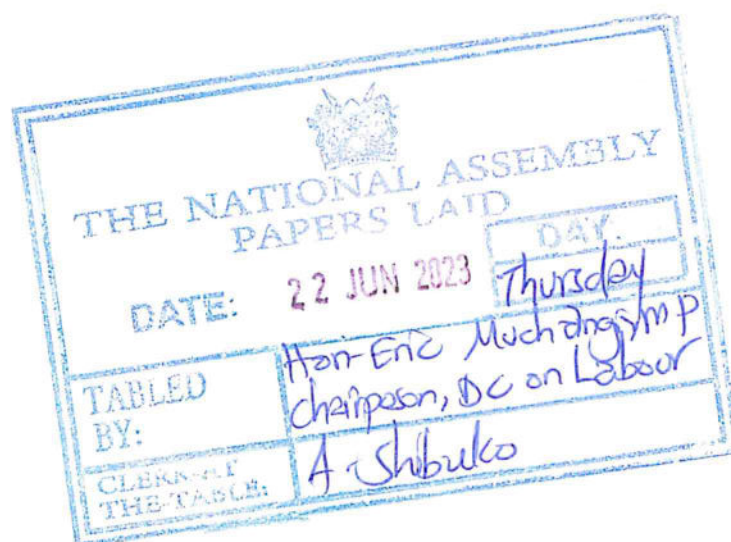 THE NATIONAL ASSEMBLY
PAPERS LAID
DATE: 22 JUN 2023
DAY.
Thursday
TABLED BY:
Hon. Eric Muchangi, MP
Chairperson, DC on Labour
CLERK-AT THE-TABLE:
A. Shibuko